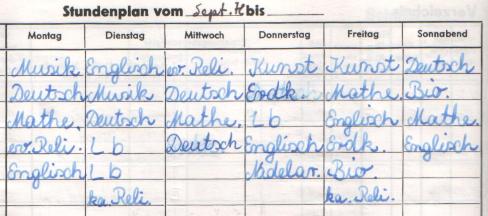 Stundenplan vom Sept. bis
Montag Dienstag Mittwoch Donnerstag Freitag Sonnabend
Musik Englisch ev. Reli. Kunst Kunst Deutsch
Deutsch Musik Deutsch Erdk. Mathe. Bio.
Mathe. Deutsch Mathe. Lb Englisch Mathe.
ev. Reli. Lb Deutsch Englisch Erdk. Englisch
Englisch Lb Bio.
ka. Reli. ka. Reli.